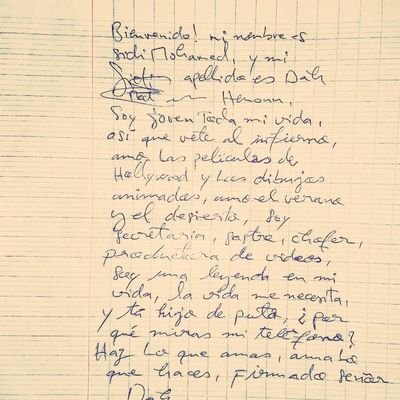 Bienvenido! mi nombre es
Sidi Mohamed, y mi
apellido es Dah
Hemonn,
Soy joven Toda mi vida,
así que vete al infierno,
amo Las peliculas de
Hollywood y Los dibujos
animados, amo el verano
y el desierto, soy
Secretaria, sastre, chofer,
productora de videos,
Soy una leyenda en mi
vida, la vida me necesita,
y tu hijo de puta, ¿por
qué miras mi teléfono?
Haz Lo que amas, ama Lo
que haces, Firmado Señor
Dah